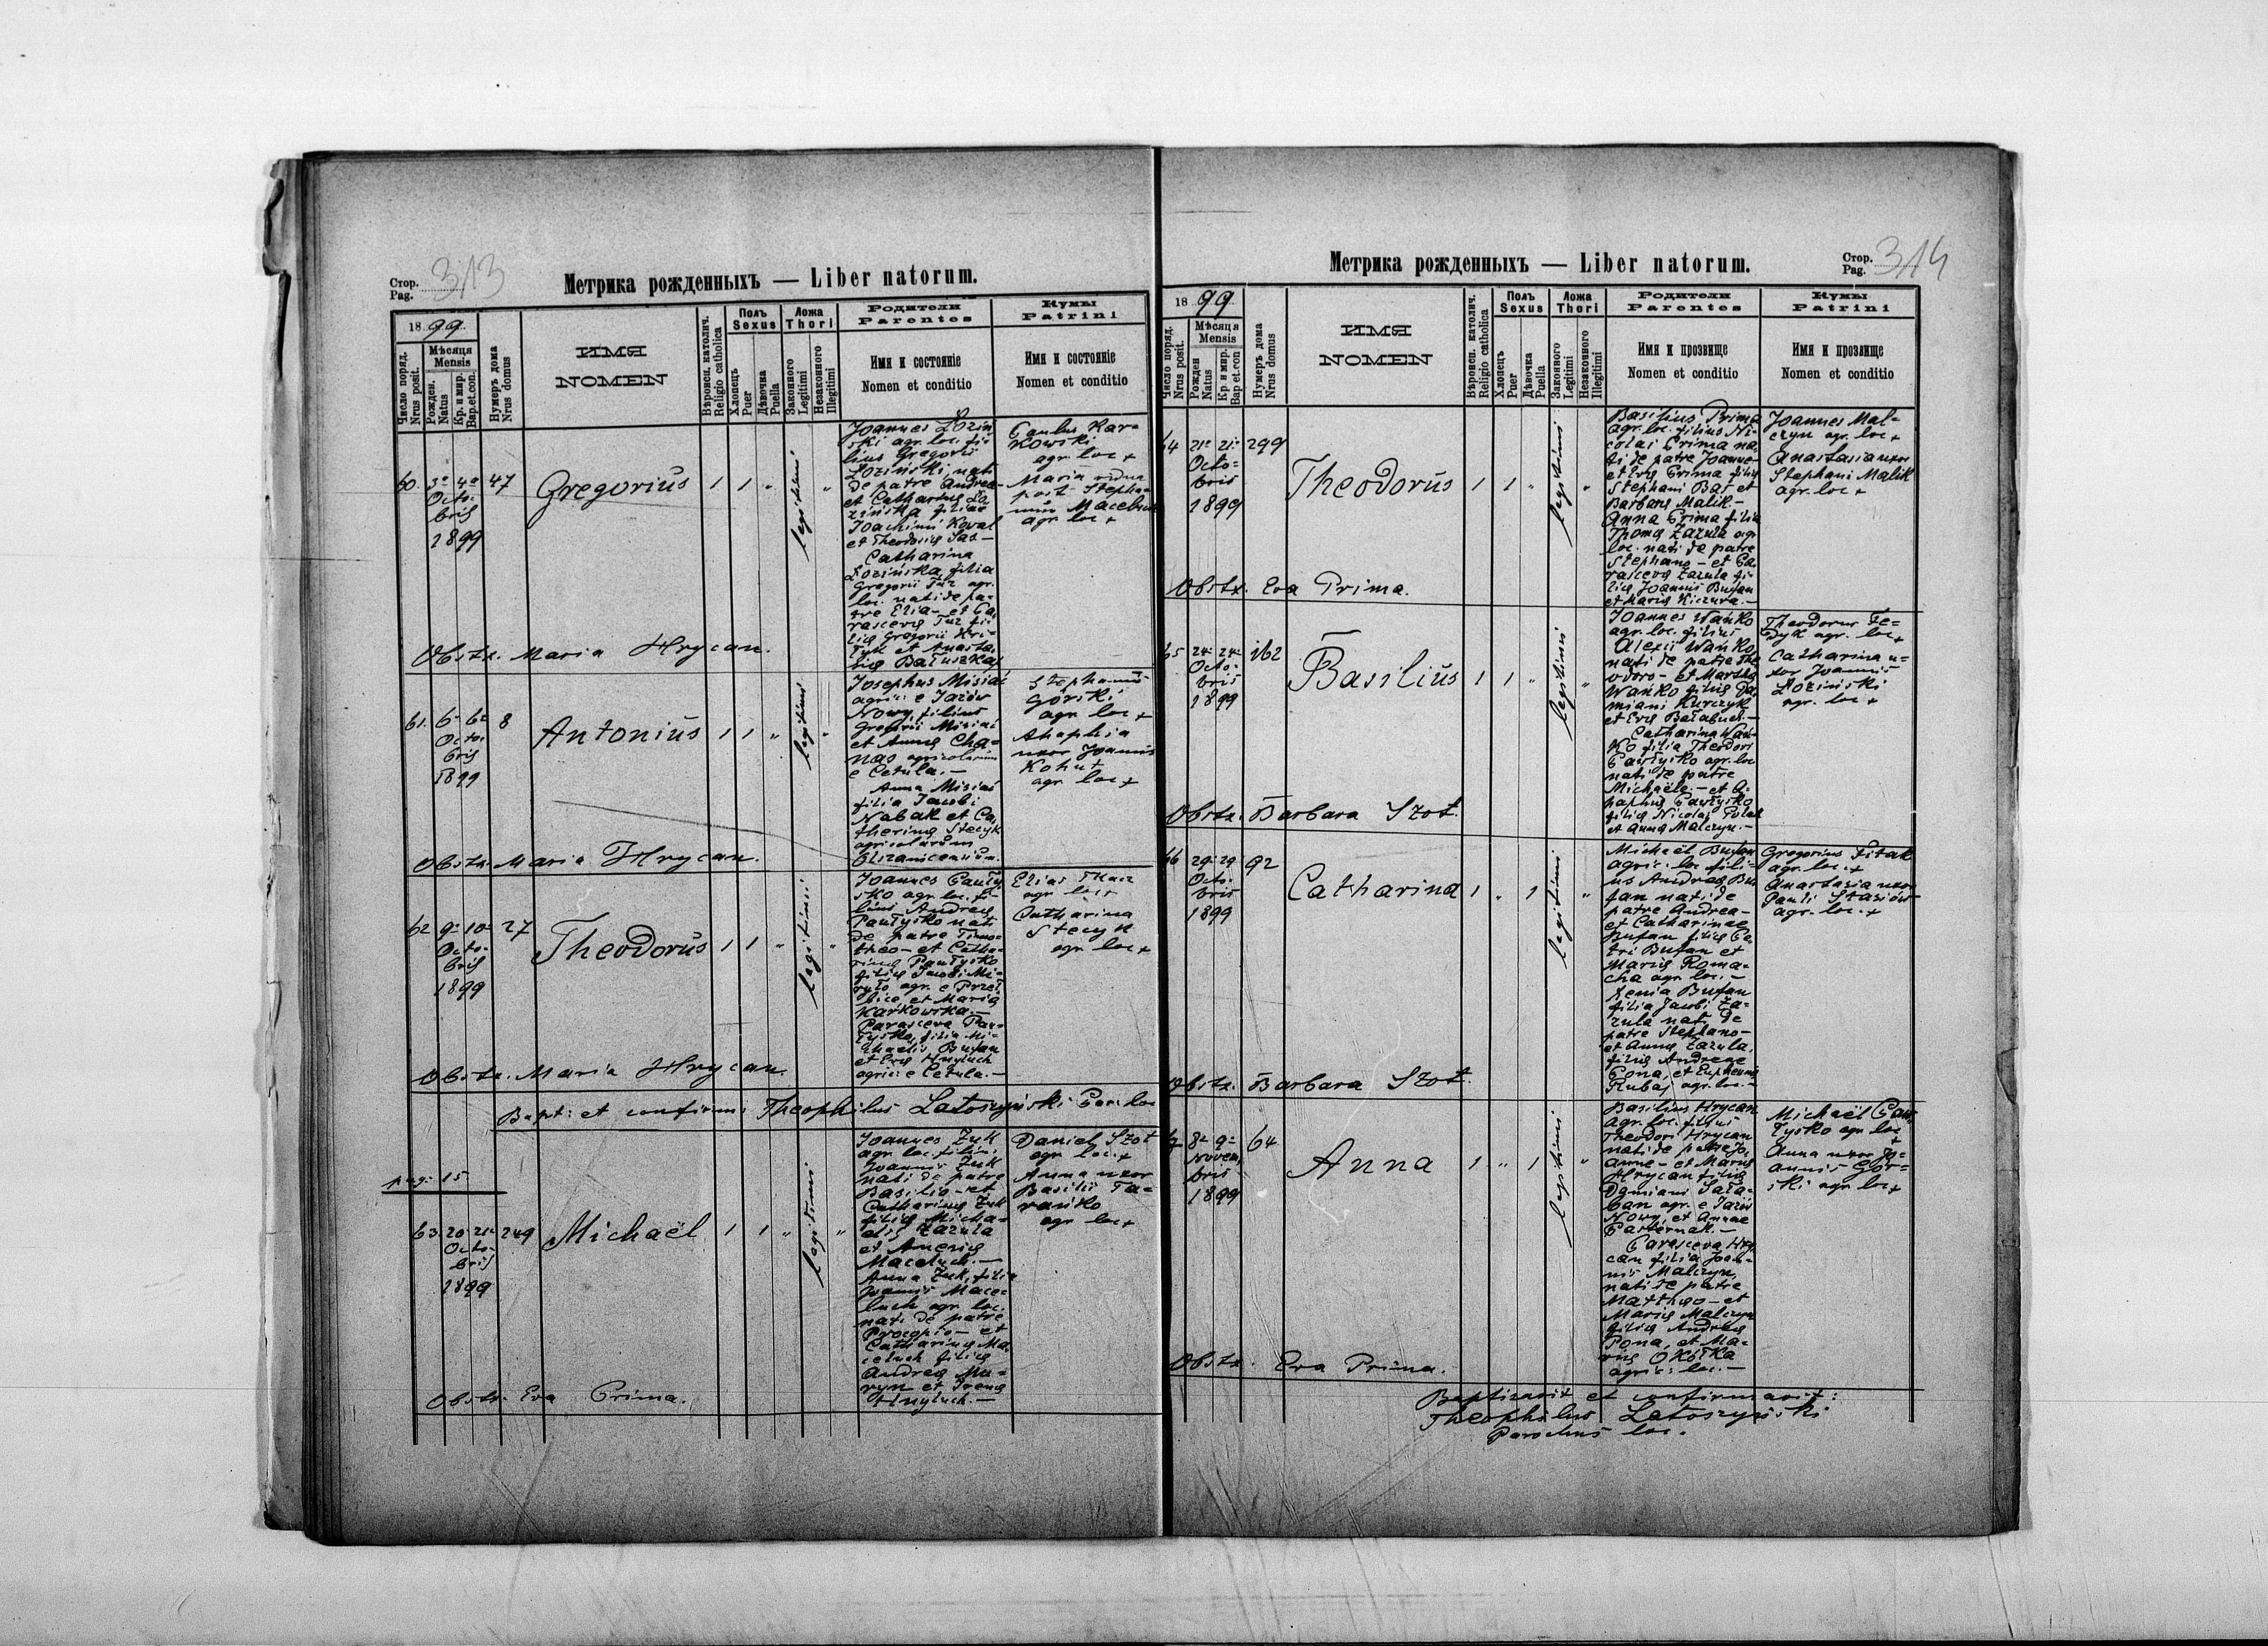 Стор. 313
Pag.
Метрика рожденныхъ — Liber natorum.
18 99
Число поряд.
Nrus posit.
Мѣсяця
Mensis
Рожден.
Natus
Кр. и мир.
Bap. et. con.
Нумеръ дома
Nrus domus
ИМЯ
NOMEN
Вѣроисп. католич.
Religio catholica
Полъ
Sexus
Хлопецъ
Puer
Дѣвочка
Puella
Ложа
Thori
Законного
Legitimi
Незаконного
Illegitimi
Родители
Parentes
Имя и состояніе
Nomen et conditio
Кумы
Patrini
Имя и состояніе
Nomen et conditio
60. 3a 4a 47 Gregorius 1 1 " legitimi "
Octo-
bris
1899
Joannes Łozin
ski agr. loc. fi-
lius Gregorii
Łozinski nati
de patre Andrea-
et Catharinę Ło
zińska filiae
Joachimi Koval
et Theodosię Sas —
Catharina
Łozińska, filia
Gregorii Tuz agr.
loc. nati de pa-
tre Elia — et Pa
rascevę Tuz fi-
lię Gregorii Hri-
tyk et Anasta-
Paulus Kar-
kowski
agr. loc +
Maria vidua
post Stepha-
num Maceluch
agr. loc +
Obstx. Maria Hrycan.
61. 6a 6a 8 Antonius 1 1 " legitimi "
Octo-
bris
1899
Josephus Misiać
agric: e Jazów
Nowy, filius
Gregorii Misiać
et Annę Cha-
nas agricolarum
e Cetula. —
Anna Misiać
filia Jacobi
Nabak et Ca
therinę Stecyk
agricolarum
Stephanus
Górski
agr. loc +
Ahaphia
uxor Joannis
Kohut
agr. loc +
Obstx. Maria Hrycan.
62 9a 10a 27 Theodorus 1 1 " legitimi "
Octo-
bris
1899
Joannes Pauły
sko agr. loc. fi-
lius Andreę
Paułysko nati
de patre Timo-
theo — et Catha-
rinę Paułysko
filię Jacobi Mi-
ryło agr. e Przeł
bice, et Marię
Karkowska. —
Parasceva Pau-
łysko, filia Mi-
chaelis Bufan
et Evę Hnyluch
agric: e Cetula. —
Elias Tkacz
agr. loc +
Catharina
Stecyk
agr. loc +
Obstx. Maria Hrycan.
Bapt: et confirm: Theophilus Latoszyński Par: loc
pag: 15.
63. 20 21a 249 Michaël 1 1 " legitimi "
Octo-
bris
1899
Joannes Żuk
agr. loc. filius
Joannis Żuk
nati de patre
Basilio — et
Catharinę Żuk
filię Micha-
elis Zazula
Maceluch. —
Anna Żuk, filia
Joannis Mace-
luch agr. loc.
nati de patre
Procopio — et
Catharinę Ma-
celuch filię
Andreę Mu-
ryn et Irenę
Hnyluch. —
Daniel Szot
agr. loc. +
Anna uxor
Basilii Ta-
rańko
agr. loc +
Obstx. Eva Prima.
Стор. 314
Pag.
Метрика рожденныхъ — Liber natorum.
18 99
Число поряд.
Nrus posit.
Мѣсяця
Mensis
Рожден
Natus
Кр. и мир.
Bap et.con
Нумеръ дома
Nrus domus
ИМЯ
NOMEN
Вѣроисп. католич.
Religio catholica
Полъ
Sexus
Хлопецъ
Puer
Дѣвочка
Puella
Ложа
Thori
Законного
Legitimi
Незаконного
Illegitimi
Родители
Parentes
Имя и прозвище
Nomen et conditio
Кумы
Patrini
Имя и прозвище
Nomen et conditio
64 21a 21a 299 Theodorus 1 1 " legitimi "
Octo-
bris
1899
Basilius Prima
agr. loc. filius Ni-
colai Prima na-
ti de patre Joanne-
et Evę Prima filię
Stephani Baś et
Barbarę Malik. —
Anna Prima filia
Thomę Zazula agr
loc. nati de patre
Stephano — et Pa
rascevę Zazula fi-
lię Joannis Bufan
et Marię Kiczura. —
Joannes Mal-
czyn agr. loc +
Anastasia uxor
Stephani Malik
agr. loc +
Obstx. Eva Prima.
65 24a 24a 162 Basilius 1 1 " legitimi "
Octo-
bris
1899
Joannes Wańko
agr. loc. filius
Alexii Wańko
nati de patre The
odoro — et Marthę
Wańko filię Da-
miani Kurczyk
et Evę Bałabuch. —
Catharina Wań-
ko filia Theodori
Paułysko agr. loc
nati de patre
Michaële — et A-
haphię Paułysko
filię Nicolai
et Annę Malczyn. —
Theodorus Fe-
dyk agr. loc +
Catharina u-
xor Joannis
Łoziński
agr. loc +
Obstx. Barbara Szot.
66 29a 29 92 Catharina 1 " 1 legitimi "
Octo-
bris
1899
Michaël Bufan
agric: loc. fili-
us Andreę Bu
fan nati de
patre Andrea —
et Catharinae
Bufan filię Pe-
tri Bufan et
Marię Roma-
cha agr. loc. —
Xenia Bufan
filia Jacobi Za-
zula nati de
patre Stephano —
et Annę Zazula,
filię Andreae
Pona, et Euphemię
Rubaj agr. loc. —
Gregorius Fitak
agr. loc. +
Anastasia uxor
Pauli Stasiów
agr. loc. +
Obstx. Barbara Szot.
67 8a 9a 64 Anna 1 " 1 legitimi "
Novem
bris
1899
Basilius Hrycan
agr. loc. filius
Theodori Hrycan
nati de patre Jo-
anne — et Marię
Hrycan filię
Damiani Sała-
ban agr. e Jazów
Nowy, et Annae
Pasternak. —
Parasceva Hry
can filia Joan-
nis Malczyn,
nati de patre
Matthęo — et
Marię Malczyn
filię Andreę
Pona, et Ma-
rię Okółka
agric: loc. —
Michaël Pau-
łysko agr. loc
+
Anna uxor Jo-
annis Gór-
ski agr. loc +
Obstx. Eva Prima.
Baptizavit et confirmavit:
Theophilus Latoszyński
Parochus loc.